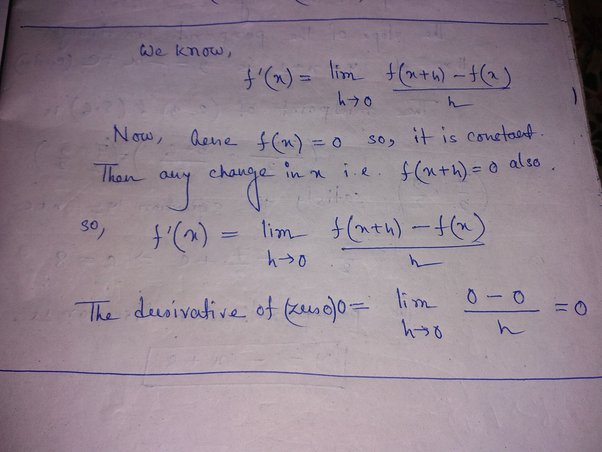 We know,
f'(x) = lim h→0 f(x+h) – f(x) / h
Now, here f(x) = 0 so, it is constant.
Then any change in x i.e. f(x+h) = 0 also.
so, f'(x) = lim h→0 f(x+h) – f(x) / h
The derivative of (zero) 0 = lim h→0 0 – 0 / h = 0